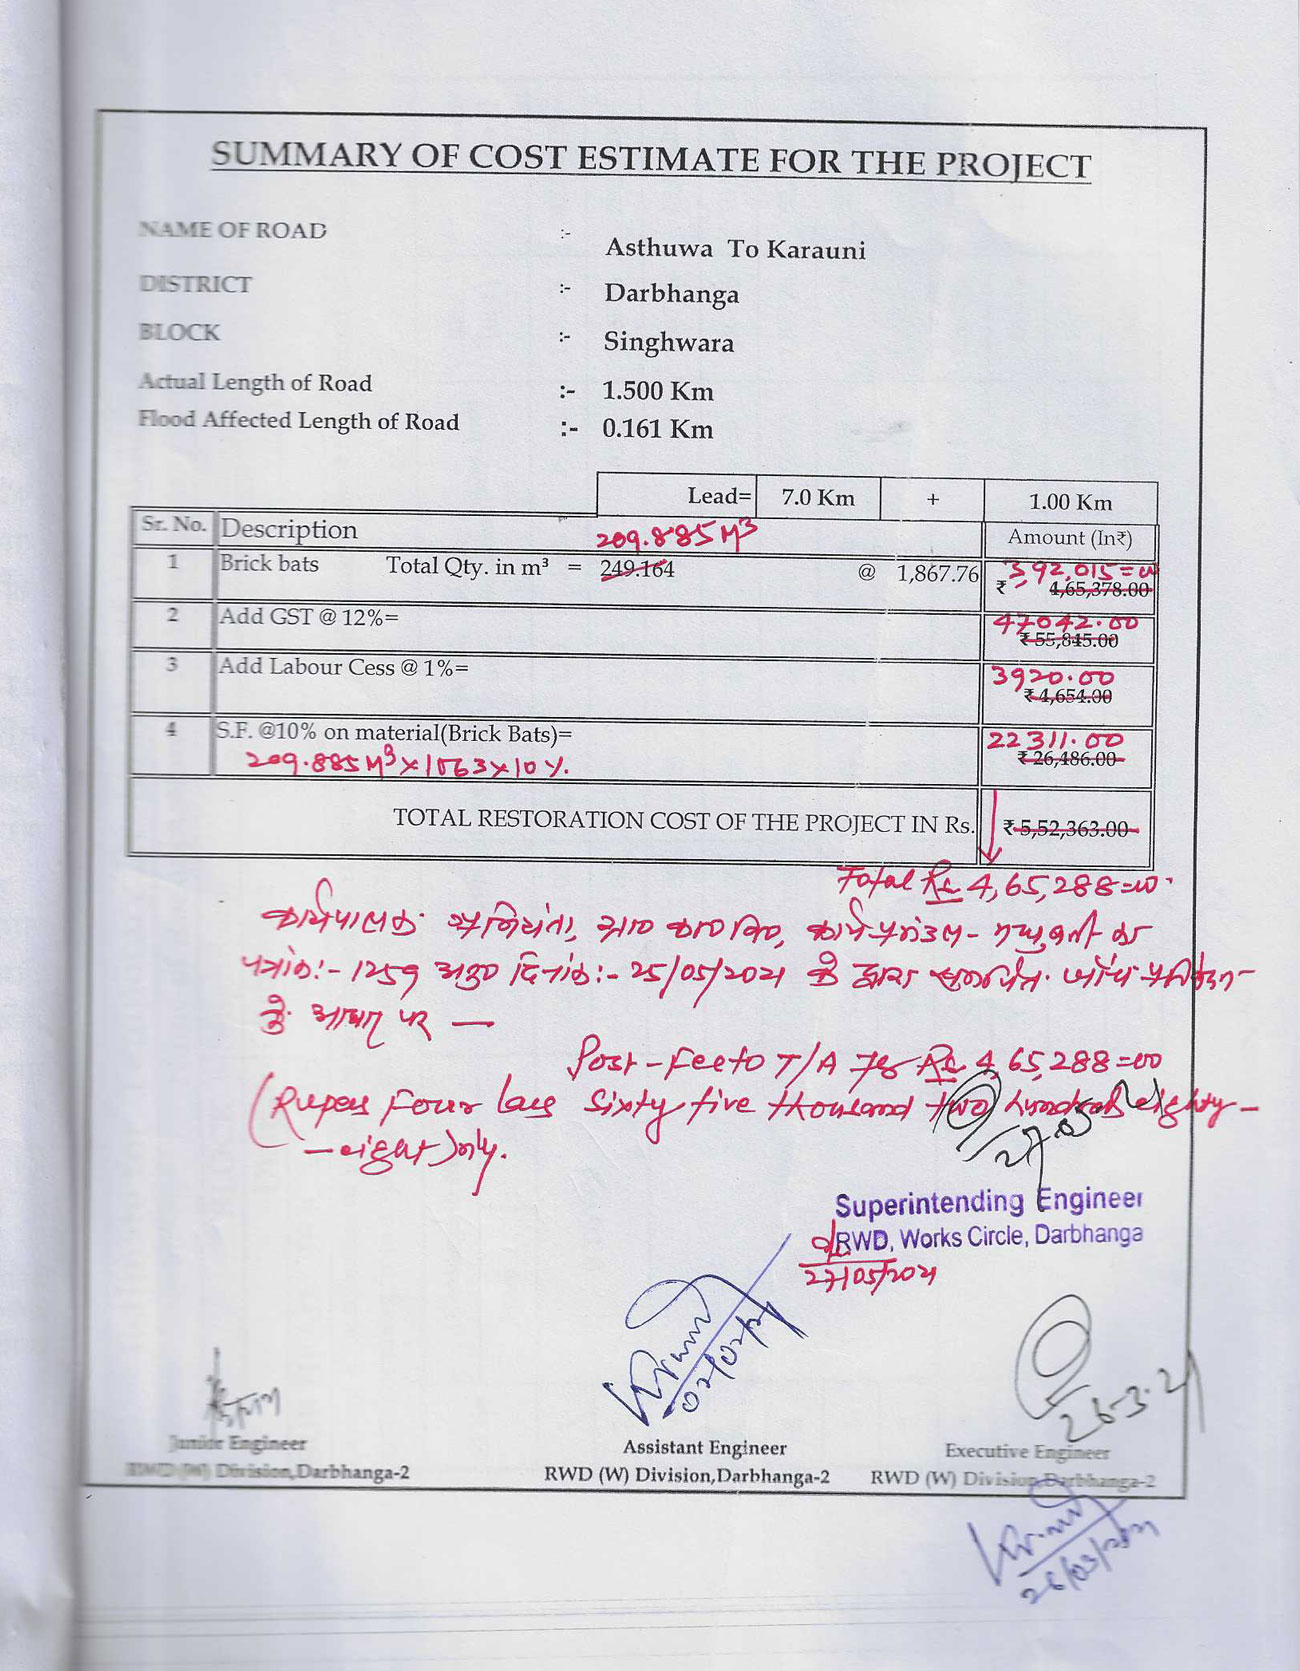 SUMMARY OF COST ESTIMATE FOR THE PROJECT
NAME OF ROAD :- Asthuwa To Karauni
DISTRICT :- Darbhanga
BLOCK :- Singhwara
Actual Length of Road :- 1.500 Km
Flood Affected Length of Road :- 0.161 Km
Lead= 7.0 Km + 1.00 Km
Sr. No. Description 209.885 M³ Amount (In₹)
1 Brick bats Total Qty. in m³ = 249.164 @ 1,867.76 ₹ 4,65,378.00 3,92,015=00
2 Add GST @ 12%= ₹ 55,845.00 47042.00
3 Add Labour Cess @ 1%= ₹ 4,654.00 3920.00
4 S.F. @10% on material(Brick Bats)= ₹ 26,486.00 22311.00
209.885M³ x 1063 x 10%.
TOTAL RESTORATION COST OF THE PROJECT IN Rs. ₹ 5,52,363.00
Total Rs 4,65,288=00.
कार्यपालक अभियंता, कार्य प्रमंडल-
पत्रांक:- 1259 अनु० दिनांक:- 25/05/2021 के द्वारा समर्पित जाँच प्रतिवेदन-
के आधार पर —
Post-Fecto T/A for Rs 4,65,288=00
(Rupees Four lacs Sixty five thousand two hundred eighty-
-eight only.
Superintending Engineer
RWD, Works Circle, Darbhanga
27/05/2021
02/02/21
26-3-21
Junior Engineer
RWD (W) Division,Darbhanga-2
Assistant Engineer
RWD (W) Division,Darbhanga-2
Executive Engineer
RWD (W) Division,Darbhanga-2
26/03/2021